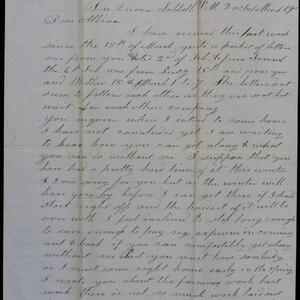 Sabbath P.M. 2 o'clock Mar 19th
Dear Albina
I have received this last week
since the 15th of March quite a packet of letters
one from you date 2nd of Feb &
the 6th Feb one from Lucy 15th and from you
and Mother 15 & The letters dont
seem to follow each other as they are wrote but
wait for each other company
You inquire when I intend to come home
I have not concluded yet I am waiting
to hear how you get along & what
you can do without me I suppose that you
have had a pretty hard time of it this winter
& I am sorry for you but as the winter will
have gone by before I can get there if I should
start right off and the hardest of it will be
over with I feel inclined to stop long enough
to earn enough to pay my expenses in coming
out & back if you can comfortably get along
without me but you must have somebody
or I must come right home early in the Spring
I wrote you about the farming work last
week there is not so much laid out